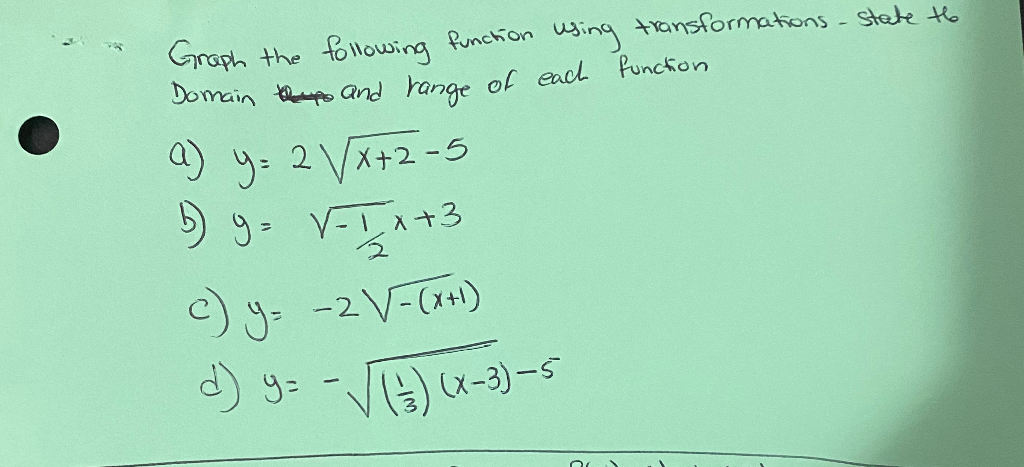 Graph the following function using transformations - state the
Domain and range of each function
a) y = 2√x+2 - 5
b) y = √-1/2 x + 3
c) y = -2√-(x+1)
d) y = -√(1/3)(x-3) - 5